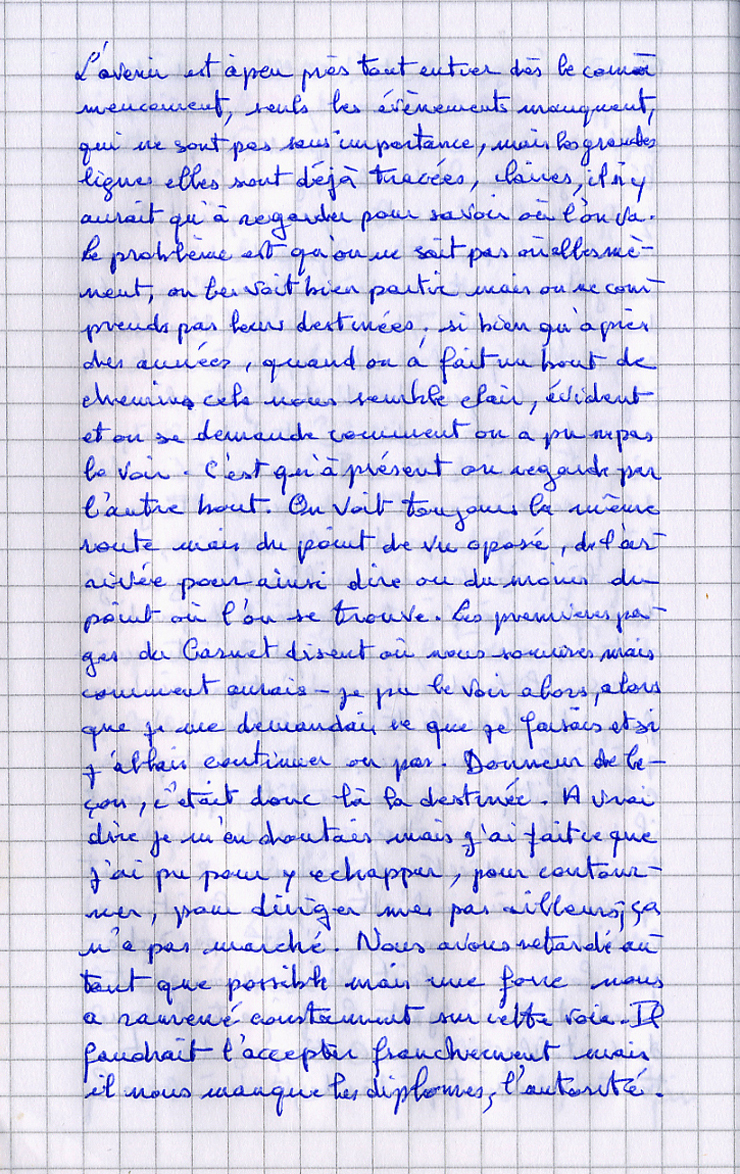 L'avenir est à peu près tout entier dès le com̄
mencement, seuls les évènements manquent,
qui ne sont pas sans importance, mais les grandes
lignes elles sont déjà tracées, claires, il n'y
aurait qu'à regarder pour savoir où l'on va.
Le problème est qu'on ne sait pas où elles mè-
nent, on les voit bien partir mais on ne com-
prends pas leurs destinées. si bien qu'après
des années, quand on a fait un bout de
chemin, cela nous semble clair, évident
et on se demande comment on a pu ne pas
le voir. C'est qu'à présent on regarde par
l'autre bout. On voit toujours la même
route mais du point de vu oposé, de l'ar-
rivée pour ainsi dire ou du moins du
point où l'on se trouve. Les premières pa-
ges du Carnet disent où nous sommes mais
comment aurais-je pu le voir alors, alors
que je me demandais ce que je faisais et si
j'allais continuer ou pas. Donneur de le-
çon, c'était donc là la destinée. A vrai
dire je m'en doutais mais j'ai fait ce que
j'ai pu pour y echapper, pour contour-
ner, pour diriger mes pas ailleurs, ça
n'a pas marché. Nous avons retardé au-
tant que possible mais une force nous
a ramené constamment sur cette voie. Il
faudrait l'accepter franchement mais
il nous manque les diplomes, l'autorité.